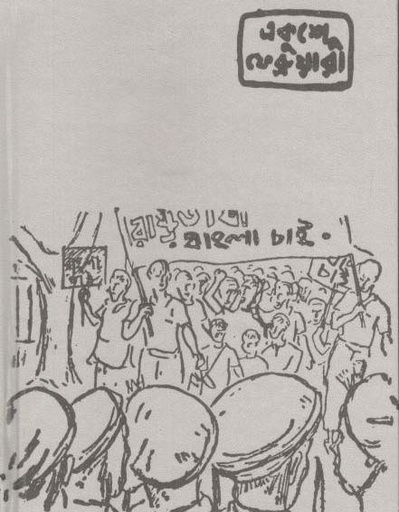 একুশে
ফেব্রুয়ারী
রাষ্ট্রভাষা
বাংলা চাই.